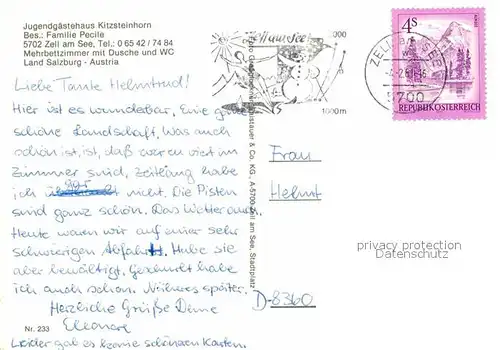 Jugendgästehaus Kitzsteinhorn
Bes.: Familie Pecile
5702 Zell am See, Tel.: 0 65 42 / 74 84
Mehrbettzimmer mit Dusche und WC
Land Salzburg - Austria
Liebe Tante Helmtrud!
Hier ist es wunderbar. Eine ganz
schöne Landschaft. Was auch
schön ist, ist, daß wir zu viert im
Zimmer sind, Zeitlang habe
ich gar nicht. Die Pisten
sind ganz schön. Das Wetter auch.
Heute waren wir auf einer sehr
schwierigen Abfahrt. Habe sie
aber bewältigt. Geschnupft habe
ich auch schon. Näheres später.
Herzliche Grüße Deine
Eleonore
Nr. 233
Leider gab es keine schönen Karten.
Zell am See
1000m
ZELL am SEE
5700
4S
REPUBLIK ÖSTERREICH
& Co. KG, A-5700 Zell am See, Stadtplatz
Frau
Helmt
D-8360
privacy protection
Datenschutz